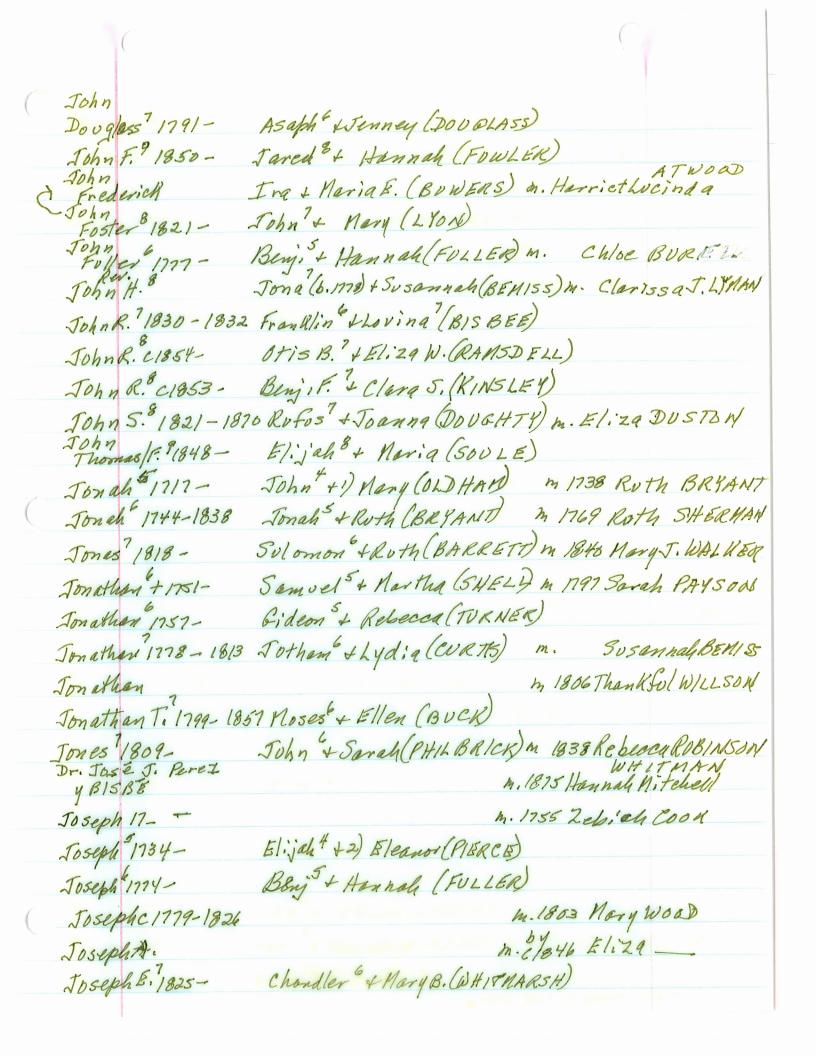 John
Douglass⁷ 1791- Asaph⁶ + Jenney (DOUGLASS)
John F.⁹ 1850- Jared⁸ + Hannah (FOWLER)
John ATWOOD
Frederick Ira + Maria E. (BOWERS) m. Harriet Lucinda
John
Foster⁸ 1821- John⁷ + Mary (LYON)
John
Fuller⁶ 1777- Benj.⁵ + Hannah (FULLER) m. Chloe
Rev.
John H.⁸ Jona⁷ (b.1778) + Susannah (BEMISS) m. Clarissa J. LYMAN
John R.⁷ 1830-1832 Franklin⁶ + Lovina⁷ (BISBEE)
John R.⁸ c1854- Otis B.⁷ + Eliza W. (RAMSDELL)
John R.⁸ c1853- Benj. F.⁷ + Clara S. (KINSLEY)
John S.⁸ 1821-1870 Rufus⁷ + Joanna (DOUGHTY) m. Eliza DUSTON
John
Thomas/F.⁹ 1848- Elijah⁸ + Maria (SOULE)
Jonah⁵ 1717- John⁴ + 1) Mary (OLDHAM) m 1738 Ruth BRYANT
Jonah⁶ 1744-1838 Jonah⁵ + Ruth (BRYANT) m 1769 Ruth SHERMAN
Jones⁷ 1818- Solomon⁶ + Ruth (BARRETT) m 1840 Mary J. WALKER
Jonathan⁶ + 1751- Samuel⁵ + Martha (SNELL) m 1797 Sarah PAYSON
Jonathan⁶ 1757- Gideon⁵ + Rebecca (TURNER)
Jonathan⁷ 1778-1813 Jotham⁶ + Lydia (CURTIS) m. Susannah BEMISS
Jonathan m 1806 Thankful WILLSON
Jonathan T.⁷ 1799-1857 Moses⁶ + Ellen (BUCK)
Jones⁷ 1809- John⁶ + Sarah (PHILBRICK) m 1838 Rebecca ROBINSON
Dr. José J. Perez WHITMAN
y BISBÉ m. 1875 Hannah Mitchell
Joseph 17_ - m. 1755 Zebiah COOK
Joseph⁵ 1734- Elijah⁴ + 2) Eleanor (PIERCE)
Joseph⁶ 1774- Benj⁵ + Hannah (FULLER)
Joseph c 1779-1826 m. 1803 Mary WOOD
Joseph A. m. by c1846 Eliza ____
Joseph E.⁷ 1825- Chandler⁶ + Mary B. (WHITMARSH)